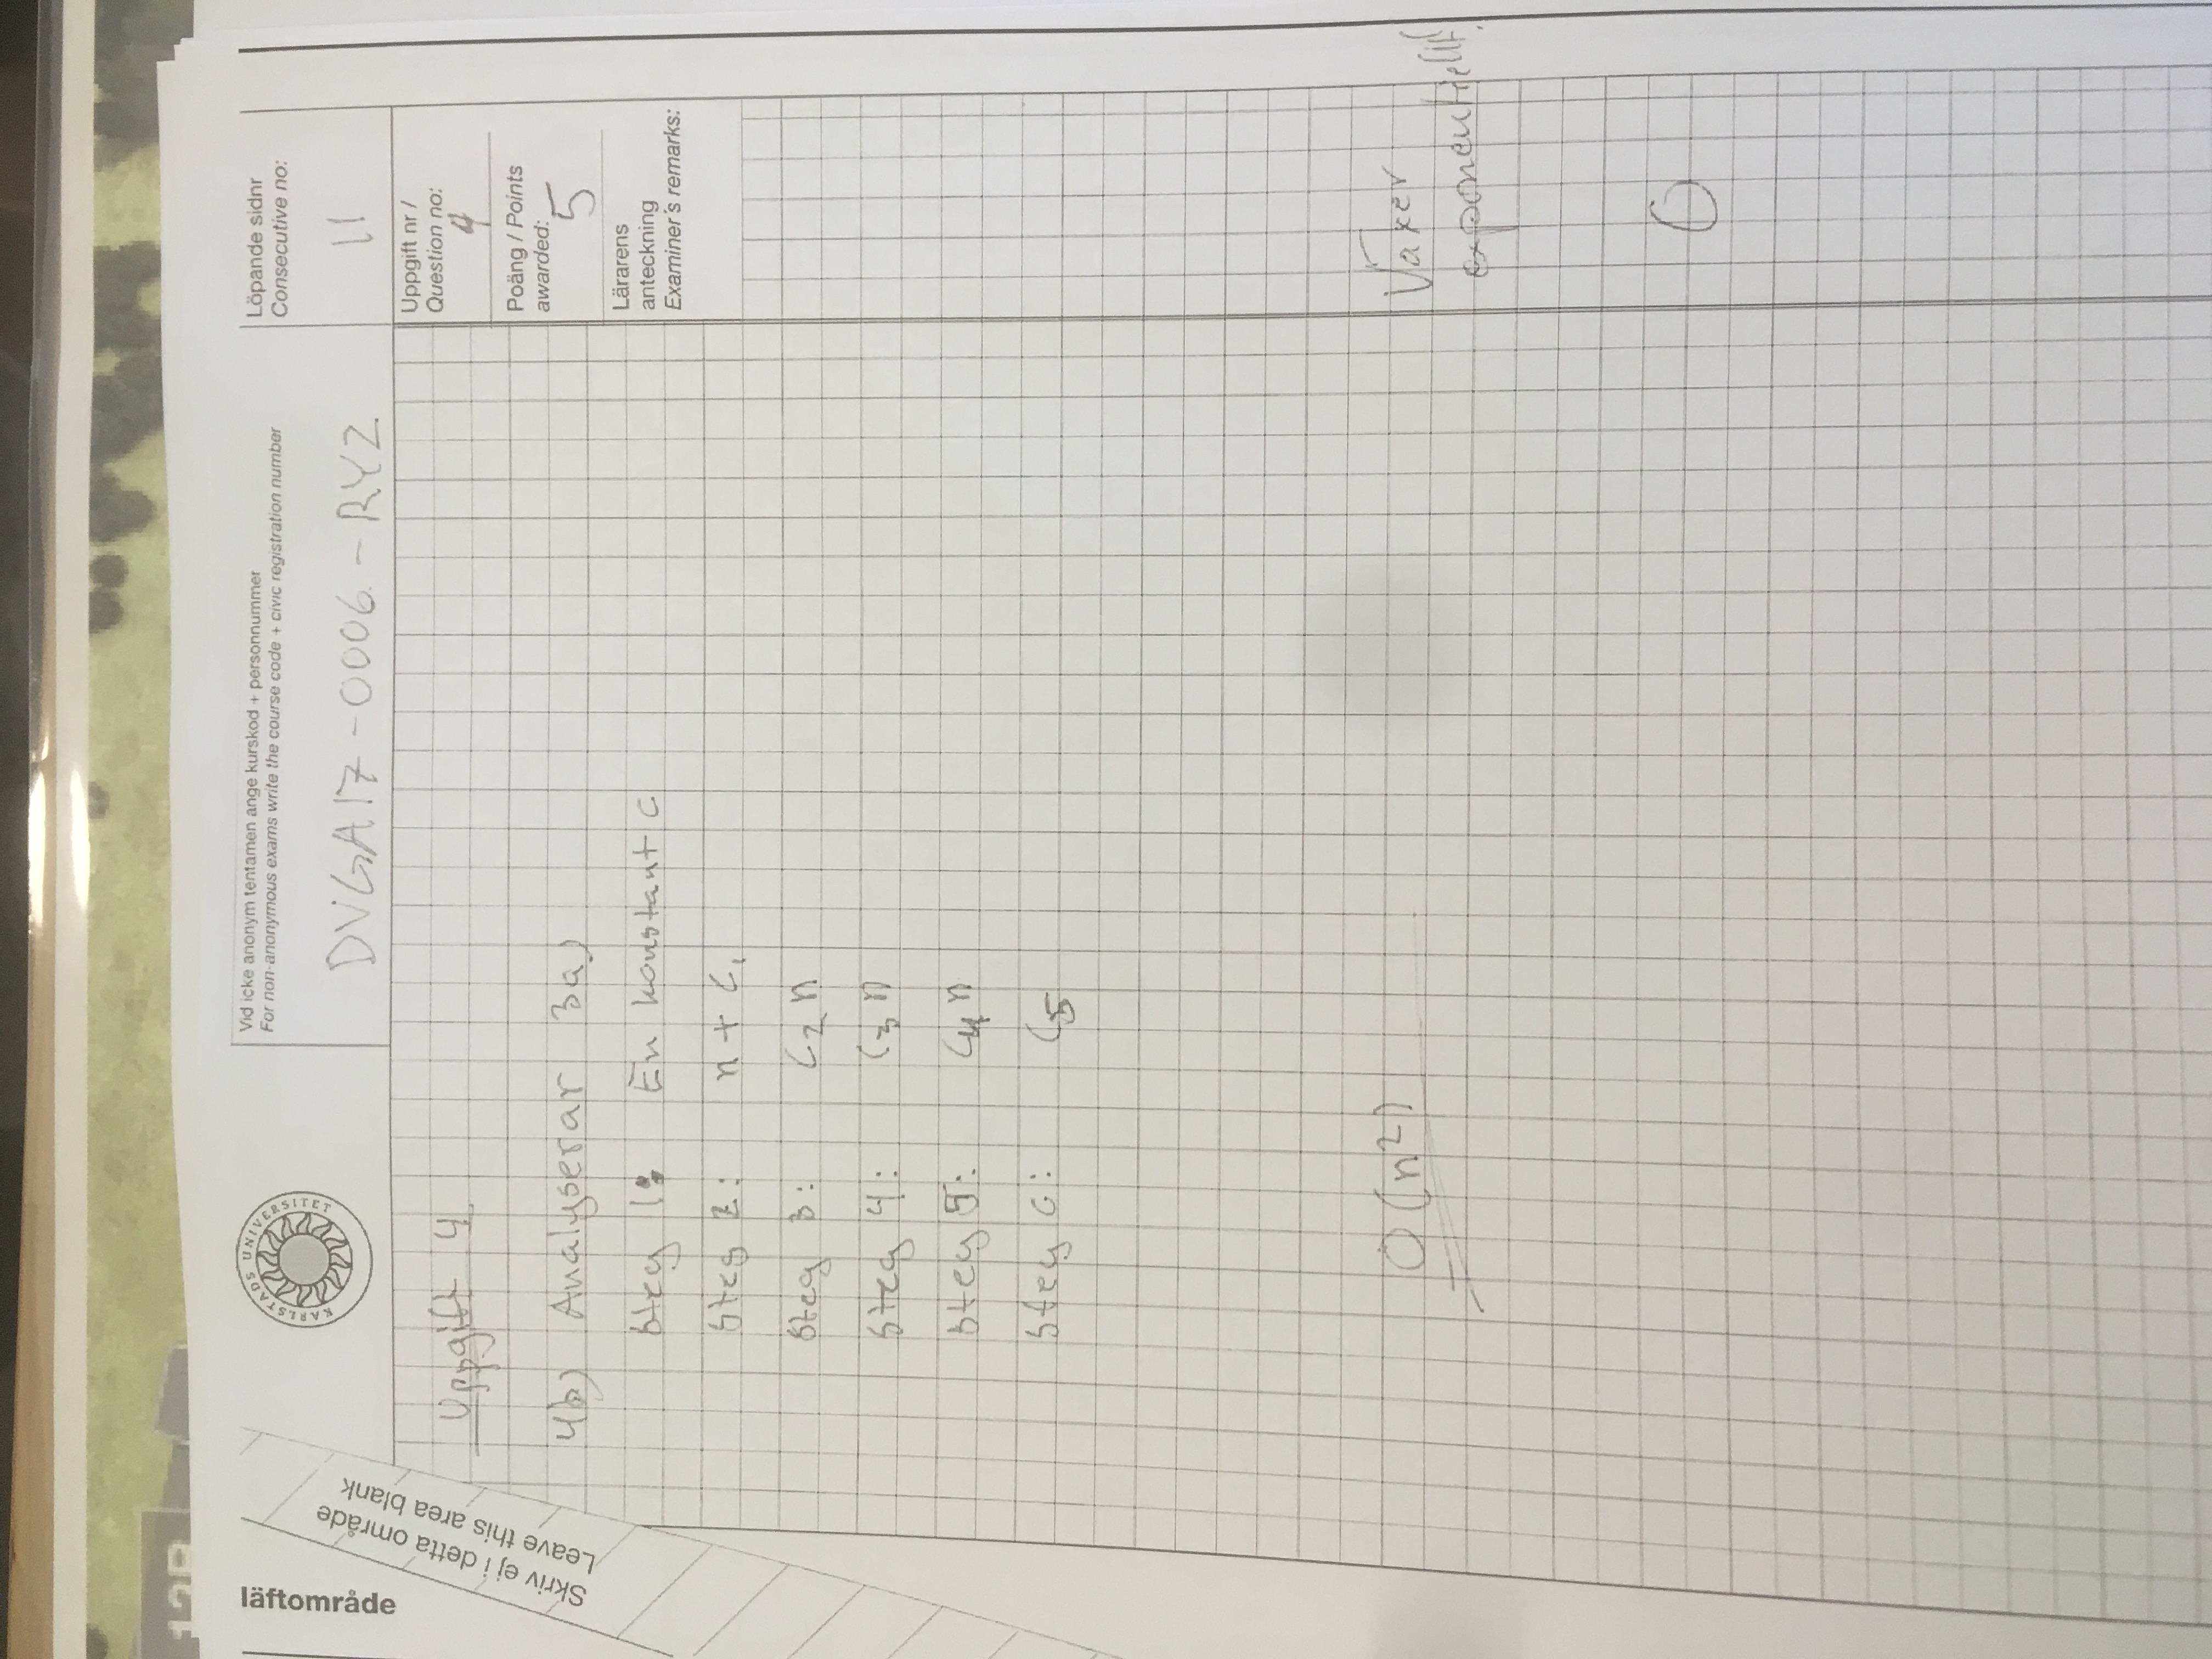 13B
läftområde
Skriv ej i detta område
Leave this area blank
KARLSTADS UNIVERSITET
Vid icke anonym tentamen ange kurskod + personnummer
For non-anonymous exams write the course code + civic registration number
DVGA17-0006-RYZ
Löpande sidnr
Consecutive no:
11
Uppgift nr /
Question no:
4
Poäng / Points
awarded:
5
Lärarens
anteckning
Examiner's remarks:
Uppgift 4
4b) Analyserar 3a)
Steg 1: En konstant c
Steg 2: n + c₁
Steg 3: c₂ n
Steg 4: c₃ n
Steg 5: c₄ n
Steg 6: c₅
O(n²)
Växer
exponentiellt!
0